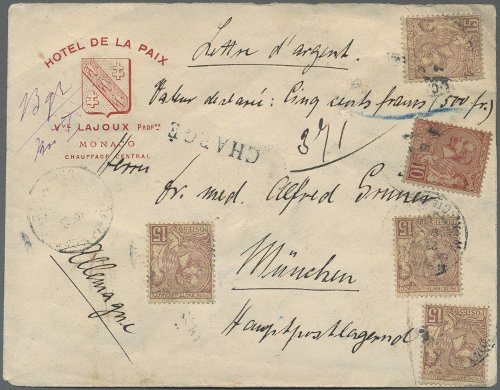 HOTEL DE LA PAIX
Vve LAJOUX PROPre
MONACO
CHAUFFAGE CENTRAL
Lettre d'argent.
Valeur déclarée: Cinq cents francs (500 fr.)
371
CHARGÉ
Herrn
Dr. med. Alfred Gruner
München
Hauptpostlagernd
Allemagne
15
10
15
15
15
POSTES